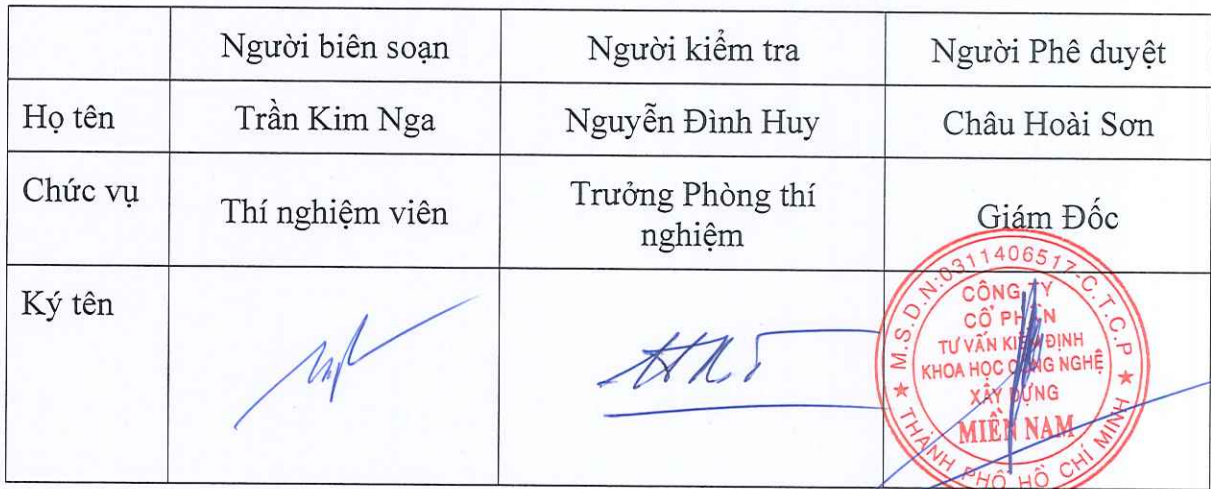 Người biên soạn Người kiểm tra Người Phê duyệt
Họ tên Trần Kim Nga Nguyễn Đình Huy Châu Hoài Sơn
Chức vụ Thí nghiệm viên Trưởng Phòng thí
nghiệm
Giám Đốc
Ký tên
M.S.D.N:0311406517-C.T.C.P
CÔNG TY
CỔ PHẦN
TƯ VẤN KIỂM ĐỊNH
KHOA HỌC CÔNG NGHỆ
XÂY DỰNG
MIỀN NAM
THÀNH PHỐ HỒ CHÍ MINH